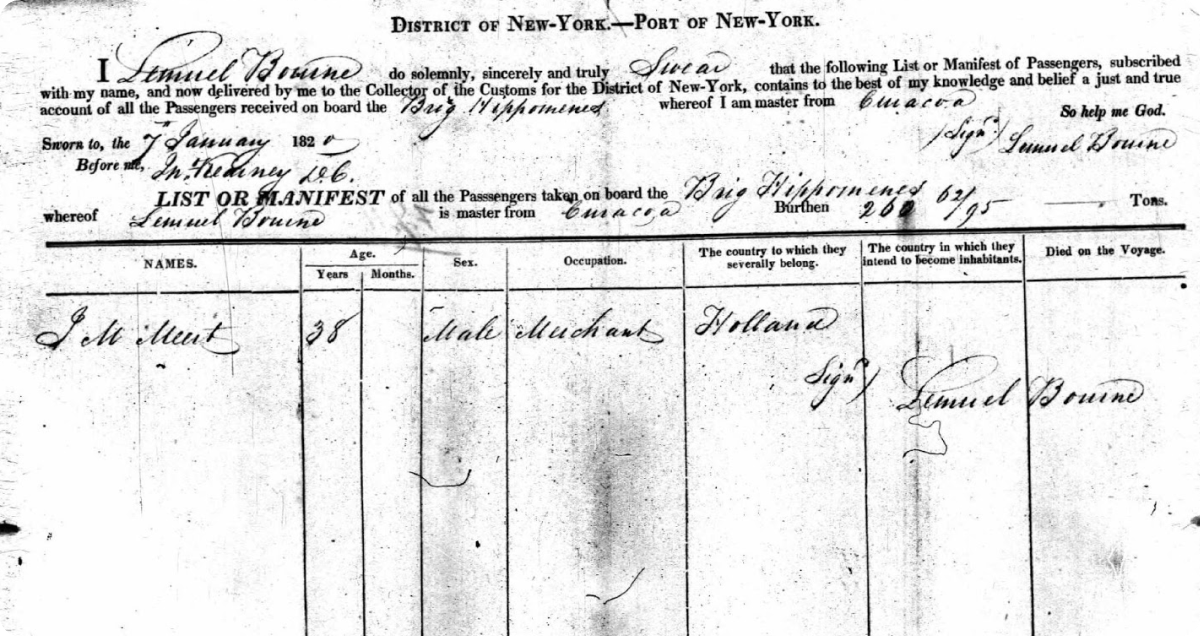 DISTRICT OF NEW-YORK.—PORT OF NEW-YORK.
I Lemuel Bourne do solemnly, sincerely and truly Swear that the following List or Manifest of Passengers, subscribed
with my name, and now delivered by me to the Collector of the Customs for the District of New-York, contains to the best of my knowledge and belief a just and true
account of all the Passengers received on board the Brig Hippomenes whereof I am master from Curacoa
So help me God.
Sworn to, the 7th January 1820 (Signd) Lemuel Bourne
Before me, Jn. Kearney D.C.
LIST OR MANIFEST of all the Passsengers taken on board the Brig Hippomenes
whereof Lemuel Bourne is master from Curacoa Burthen 260 62/95 Tons.
NAMES. Age. Years Months. Sex. Occupation. The country to which they severally belong. The country in which they intend to become inhabitants. Died on the Voyage.
J M Meert 38 Male Merchant Holland
Signd) Lemuel Bourne